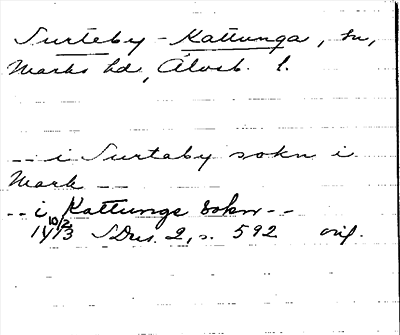 Surteby - Kattunga, sn,
Marks hd, Älvsb. l.
-- i Surtaby sokn i
Mark --
-- i Kattunge sokn --
10/2
1413 SDns. 2, s. 592 orig.